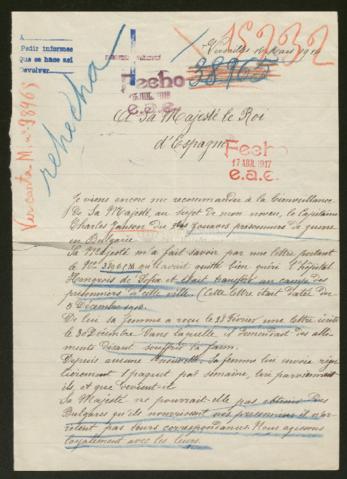 A
Pedir informes
Que se hace así
devolver
rehecha
38965
15232
Fecho
e.a.e.
A Sa Majesté le Roi
d'Espagne
Fecho
17 ABR. 1917
e.a.e.
Je viens encore me recommander à la bienveillance
De Sa Majesté, au sujet de mon neveu, le Capitaine
Charles Janson, du zouaves prisonnier de guerre
en Bulgarie
Sa Majesté m'a fait savoir par une lettre portant
le N° qu'il avait quitté bien guéri l'hôpital
Hongrois de Sofia et était transféré au camp des
prisonniers d'elle ville. (Cette lettre était datée du
8 Décembre
Or lui sa femme a reçu le 23 février une lettre écrite
le 30 Décembre dans laquelle il demandait des ali-
ments disant souffrir la faim.
Depuis aucune nouvelle. Sa femme lui envoie régu-
lièrement 1 paquet par semaine, lui parviennent
ils et que devient-il
Sa Majesté ne pourrait-elle pas obtenir des
Bulgares qu'ils nourrissent nos prisonniers et n'ar-
rêtent pas leurs correspondances. Nous agissons
loyalement avec les leurs.